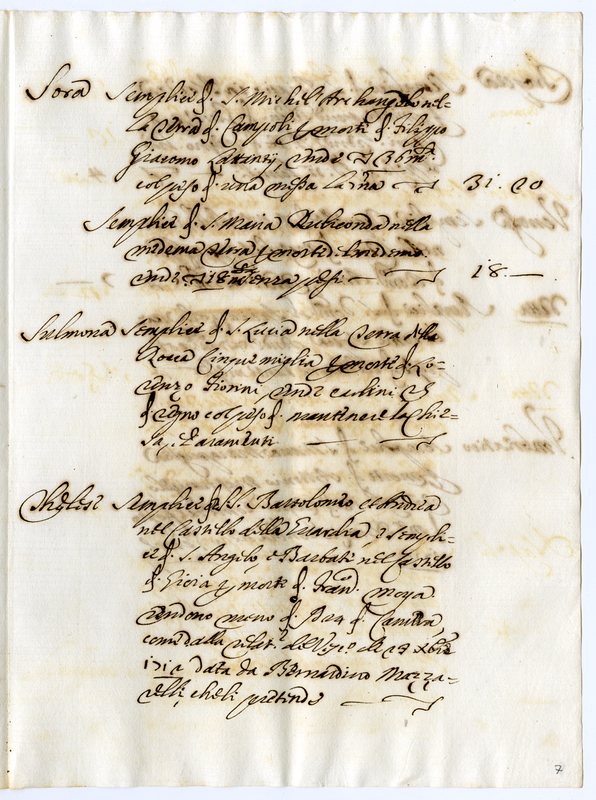 Sora Semplice di S. Michel Archangelo nel=
la Terra di Campoli per morte di Filippo
Giacomo Lattanzj, rende 36 m.ta
col peso di una messa la m̃a 31. 20
Semplice di S. Maria Rubiconda nella
medema Terra per morte del medemo.
rende 18 m.ta senza pesi 18.
Sulmona Semplice di S. Lucia nella Terra della
Rocca Cinque miglia per morte di Lo=
renzo Fiorini rende carlini
di regno col peso di mantenere la Chie=
sa, e Paramenti.
Semplici di SS. Bartolomeo et Andrea
nel Castello della Guardia, e Sempli=
ce di S. Angelo, e Barbati nel Castello
di Gioia per morte di Fran.co Moya
rendono meno di 24 di Camera,
come dalla relat.e del V. de 19 Xbre
1712 data da Bernardino Mazza=
relli, che li pretende
7